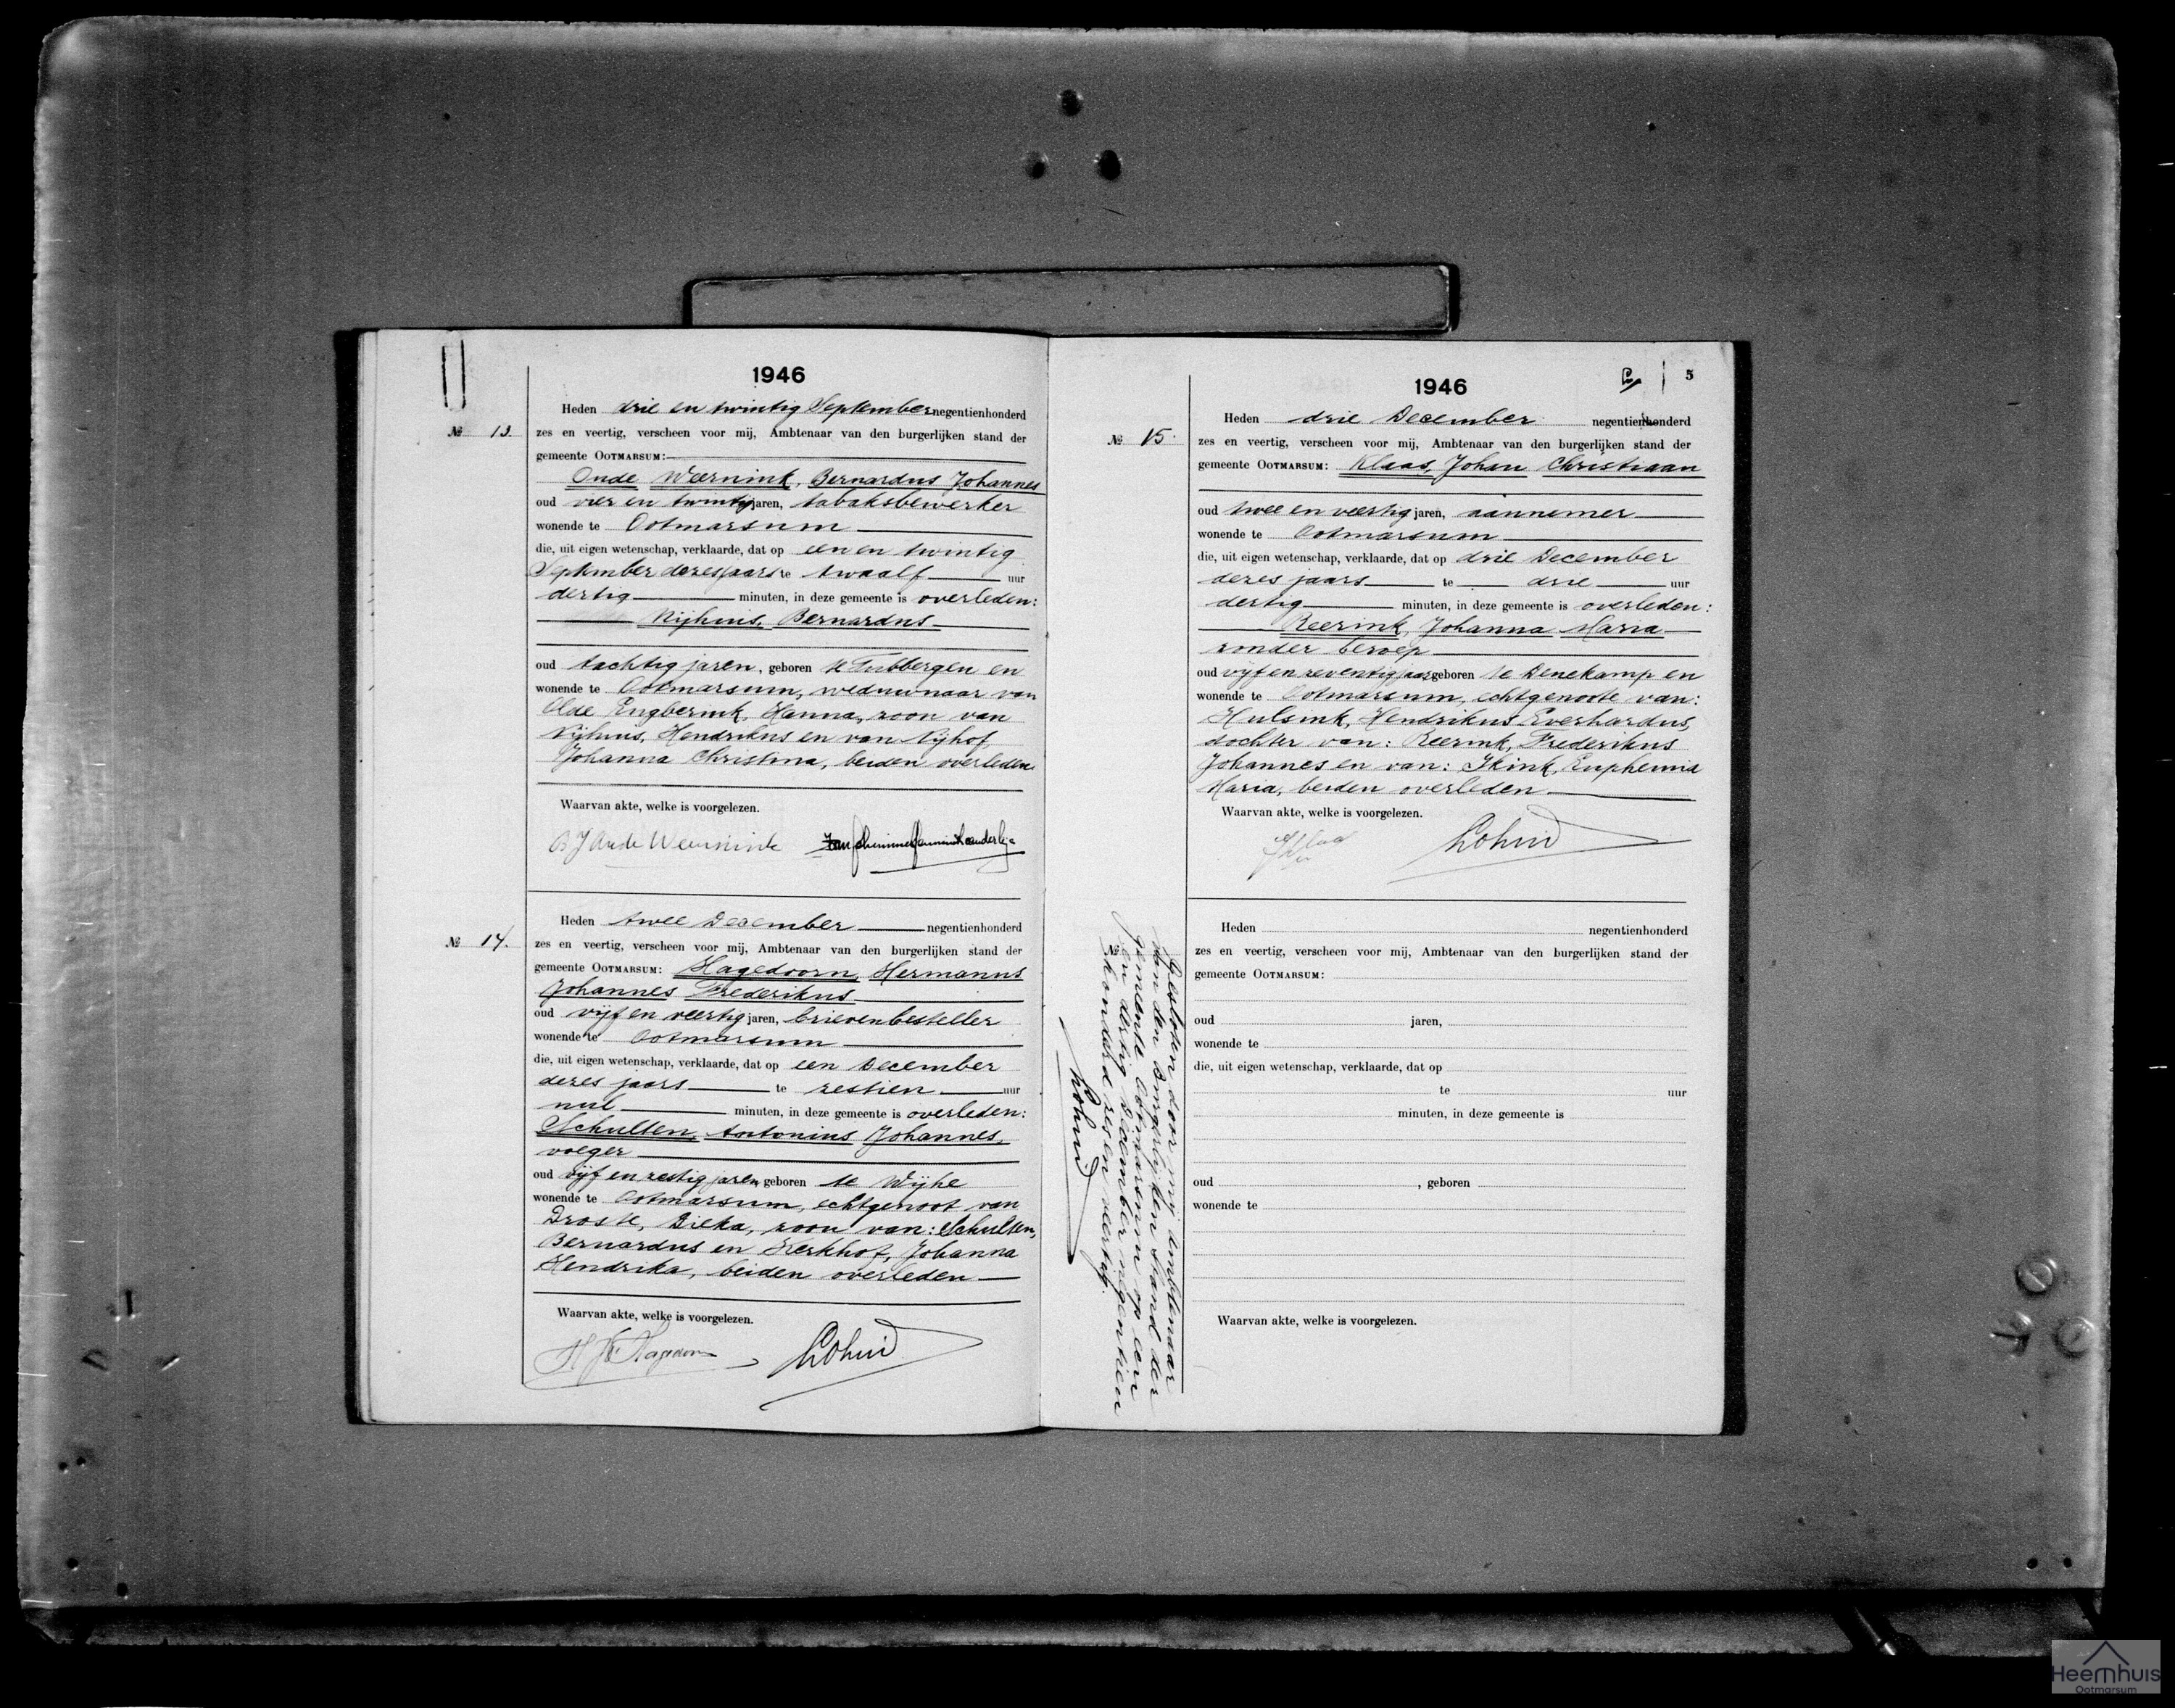 1946
№ 13.
Heden drie en twintig September negentienhonderd
zes en veertig, verscheen voor mij, Ambtenaar van den burgerlijken stand der
gemeente OOTMARSUM:
Oude Weernink, Bernardus Johannes
oud vier en twintig jaren, tabaksbewerker
wonende te Ootmarsum
die, uit eigen wetenschap, verklaarde, dat op een en twintig
September dezes jaars te twaalf uur
dertig minuten, in deze gemeente is overleden:
Nijhuis, Bernardus
oud tachtig jaren, geboren te Tubbergen en
wonende te Ootmarsum, weduwnaar van
Olde Engberink, Hanna, zoon van
Nijhuis, Hendrikus en van Nijhof,
Johanna Christina, beiden overleden
Waarvan akte, welke is voorgelezen.
B J Oude Weernink
№ 14.
Heden twee December negentienhonderd
zes en veertig, verscheen voor mij, Ambtenaar van den burgerlijken stand der
gemeente OOTMARSUM: Hagedoorn, Hermannus
Johannes Frederikus
oud vijf en veertig jaren, brievenbesteller
wonende te Ootmarsum
die, uit eigen wetenschap, verklaarde, dat op een December
dezes jaars te zestien uur
nul minuten, in deze gemeente is overleden:
Schulten, Antonius Johannes,
voeger
oud vijf en zestig jaren, geboren te Wijhe
wonende te Ootmarsum, echtgenoot van
Droste, Dieka, zoon van: Schulten,
Bernardus en Kerkhof, Johanna
Hendrika, beiden overleden
Waarvan akte, welke is voorgelezen.
1946
5
№ 15.
Heden drie December negentienhonderd
zes en veertig, verscheen voor mij, Ambtenaar van den burgerlijken stand der
gemeente OOTMARSUM: Klaas, Johan Christiaan
oud twee en veertig jaren, aannemer
wonende te Ootmarsum
die, uit eigen wetenschap, verklaarde, dat op drie December
dezes jaars te drie uur
dertig minuten, in deze gemeente is overleden:
Reerink, Johanna Maria
zonder beroep
oud vijf en zeventig jaar, geboren te Denekamp en
wonende te Ootmarsum, echtgenoote van:
Hulsink, Hendrikus Everhardus,
dochter van: Reerink, Frederikus
Johannes en van: Ikink, Euphemia
Maria, beiden overleden
Waarvan akte, welke is voorgelezen.
№
Gesloten door mij Ambtenaar
van den Burgerlijken Stand der
gemeente Ootmarsum op een
en dertig December negentien
honderd zes en veertig.
Heden negentienhonderd
zes en veertig, verscheen voor mij, Ambtenaar van den burgerlijken stand der
gemeente OOTMARSUM:
oud jaren,
wonende te
die, uit eigen wetenschap, verklaarde, dat op
te uur
minuten, in deze gemeente is
oud , geboren
wonende te
Waarvan akte, welke is voorgelezen.
Heemhuis
Ootmarsum